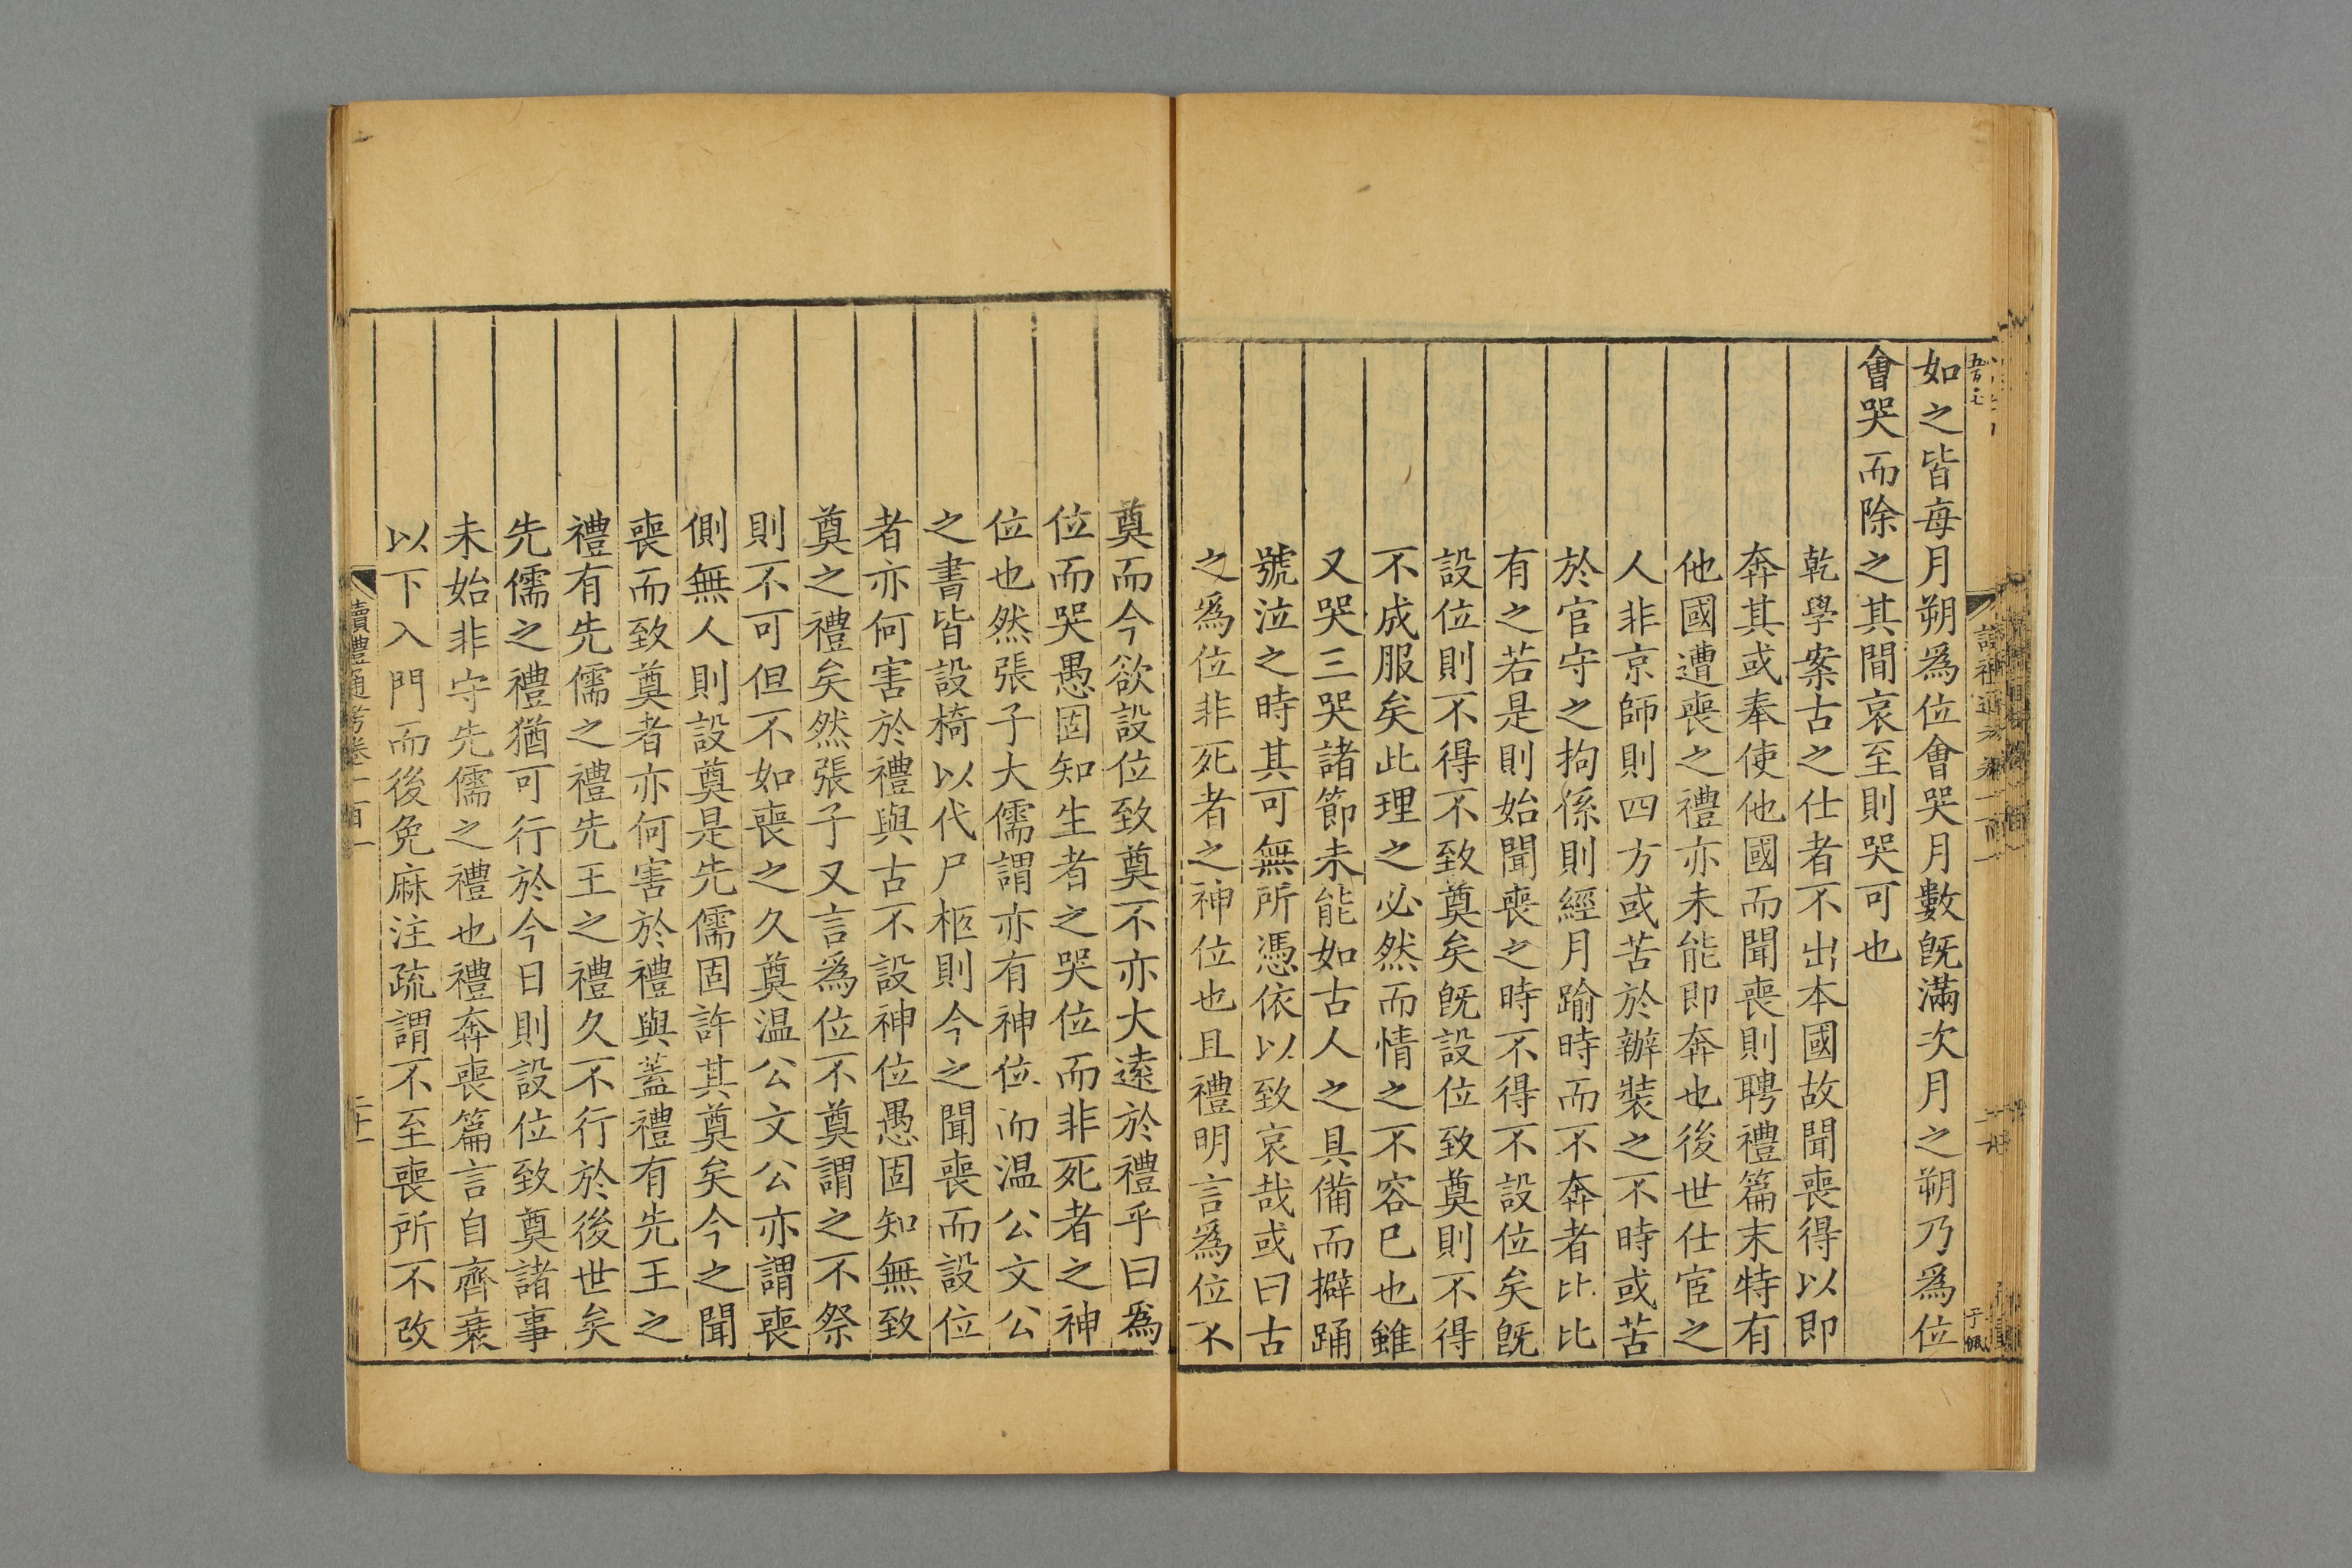 如之皆每月朔爲位會哭月數既滿次月之朔乃爲位
會哭而除之其間哀至則哭可也
乾學案古之仕者不出本國故聞喪得以即
奔其或奉使他國而聞喪則聘禮篇末特有
他國遭喪之禮亦未能即奔也後世仕宦之
人非京師則四方或苦於辦裝之不時或苦
於官守之拘係則經月踰時而不奔者比比
有之若是則始聞喪之時不得不設位矣既
設位則不得不致奠矣既設位致奠則不得
不成服矣此理之必然而情之不容已也雖
又哭三哭諸節未能如古人之具備而擗踊
號泣之時其可無所憑依以致哀哉或曰古
之爲位非死者之神位也且禮明言爲位不
奠而今欲設位致奠不亦大遠於禮乎曰爲
位而哭愚固知生者之哭位而非死者之神
位也然張子大儒謂亦有神位而温公文公
之書皆設椅以代尸柩則今之聞喪而設位
者亦何害於禮與古不設神位愚固知無致
奠之禮矣然張子又言爲位不奠謂之不祭
則不可但不如喪之久奠温公文公亦謂喪
側無人則設奠是先儒固許其奠矣今之聞
喪而致奠者亦何害於禮與蓋禮有先王之
禮有先儒之禮先王之禮久不行於後世矣
先儒之禮猶可行於今日則設位致奠諸事
未始非守先儒之禮也禮奔喪篇言自齊衰
以下入門而後免麻注疏謂不至喪所不改
讀禮通考卷一百一
二十一